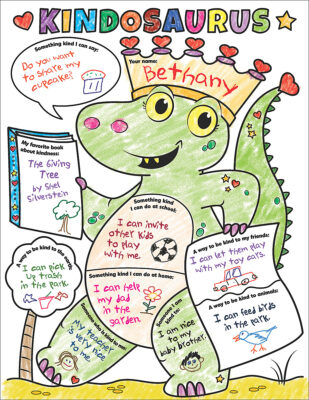 KINDOSAURUS
Something kind I can say:
Do you want
to share my
cupcake?
Your name:
Bethany
My favorite book
about kindness:
The Giving
Tree
by Shel
Silverstein
Something kind
I can do at school:
I can invite
other kids
to play
with me.
A way to be kind to my friends:
I can let them play
with my toy cars.
A way to be kind to the earth:
I can pick
up trash
in the park.
Something kind I can do at home:
I can help
my dad
in the
garden.
A way to be kind to animals:
I can feed birds
in the park.
Someone who is kind to me:
My teacher
is very nice
to me.
Someone I am
kind to:
I am nice
to my
baby brother.